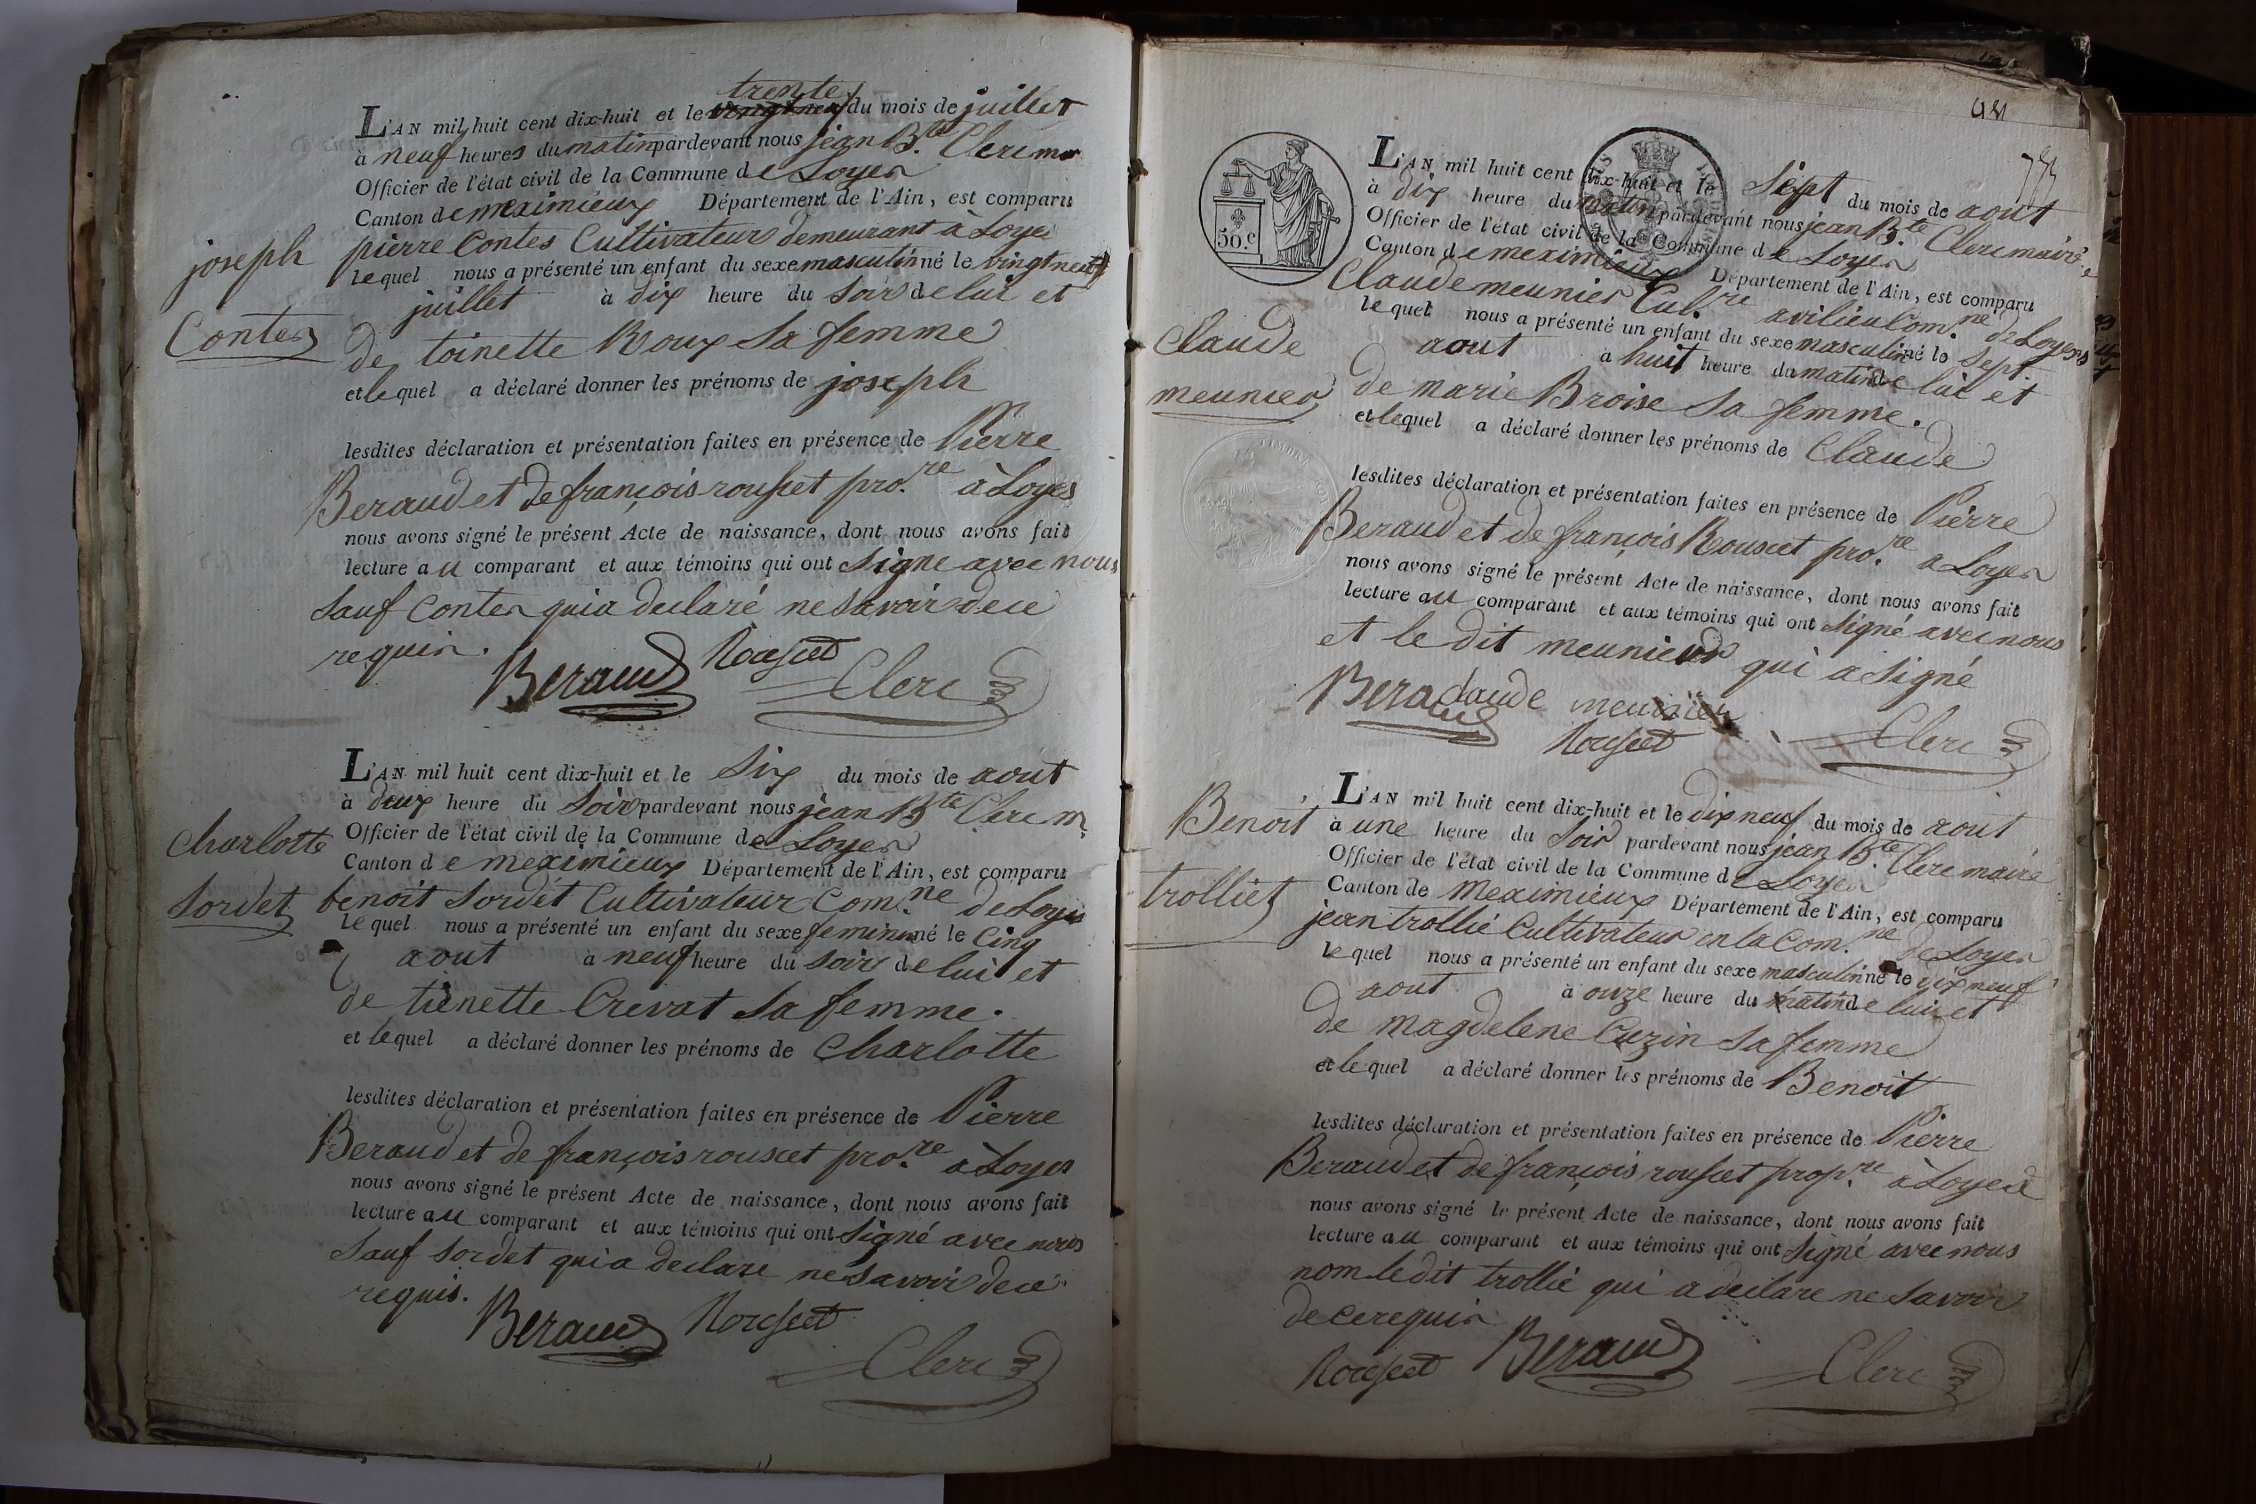 trente
L'AN mil huit cent dix-huit et le vingtneuf du mois de juillet
à neuf heures du matin pardevant nous jean Bte. Clerc mre
Officier de l'état civil de la Commune de Loyes
Canton de meximieux Département de l'Ain, est comparu
pierre Contes Cultivateur demeurant à Loyes
lequel nous a présenté un enfant du sexe masculin né le vingtneuf
juillet à dix heure du soir de lui et
de toinette Roux Sa femme
et lequel a déclaré donner les prénoms de joseph
lesdites déclaration et présentation faites en présence de Pierre
Beraud et de françois rousset pro.re à Loyes
nous avons signé le présent Acte de naissance, dont nous avons fait
lecture au comparant et aux témoins qui ont Signe avec nous
Sauf Contes qui a declaré ne Savoir de ce
requis.
Beraud Rousset
Clerc
joseph
Contes
L'AN mil huit cent dix-huit et le Six du mois de aout
à deux heure du Soir pardevant nous jean Bte Clerc m.
Officier de l'état civil de la Commune de Loyes
Canton de meximieux Département de l'Ain, est comparu
benoit Sordet Cultivateur Com.ne de Loyes
lequel nous a présenté un enfant du sexe feminin né le Cinq
aout à neuf heure du soir de lui et
de tienette Crevat Sa femme.
et lequel a déclaré donner les prénoms de Charlotte
lesdites déclaration et présentation faites en présence de Pierre
Beraud et de françois rousset pro.re à Loyes
nous avons signé le présent Acte de naissance, dont nous avons fait
lecture au comparant et aux témoins qui ont Signé avec nous
Sauf Sordet qui a declare ne Savoir de ce
requis.
Beraud Rousset
Clerc
Charlotte
Sordet
50.c
L'AN mil huit cent dix-huit et le Sept du mois de aout
à dix heure du matin pardevant nous jean Bte. Clerc maire
Officier de l'état civil de la Commune de Loyes
Canton de meximieux Département de l'Ain, est comparu
Claude meunier Cul.re a vilieu Com.ne de Loyes
lequel nous a présenté un enfant du sexe masculin né le Sept
aout à huit heure du matin de lui et
de marie Broise Sa femme.
et lequel a déclaré donner les prénoms de Claude
lesdites déclaration et présentation faites en présence de Pierre
Beraud et de françois Rousset pro.re a Loyes
nous avons signé le présent Acte de naissance, dont nous avons fait
lecture au comparant et aux témoins qui ont Signé avec nous
et le dit meunier qui a Signé
Beraud claude meunier
Rousset Clerc
Claude
meunier
L'AN mil huit cent dix-huit et le dix neuf du mois de aout
à une heure du Soir pardevant nous jean Bte. Clerc maire
Officier de l'état civil de la Commune de Loyes
Canton de meximieux Département de l'Ain, est comparu
jean trollié Cultivateur en la Com.ne de Loyes
lequel nous a présenté un enfant du sexe masculin né le dix neuf
aout à onze heure du matin de lui et
de magdelene Cuzin Sa femme
et lequel a déclaré donner les prénoms de Benoit
lesdites déclaration et présentation faites en présence de Pierre
Beraud et de françois rousset prop.re à Loyes
nous avons signé le présent Acte de naissance, dont nous avons fait
lecture au comparant et aux témoins qui ont Signé avec nous
nom le dit trollié qui a declare ne Savoir
de ce requis
Rousset Beraud Clerc
Benoit
trolliet